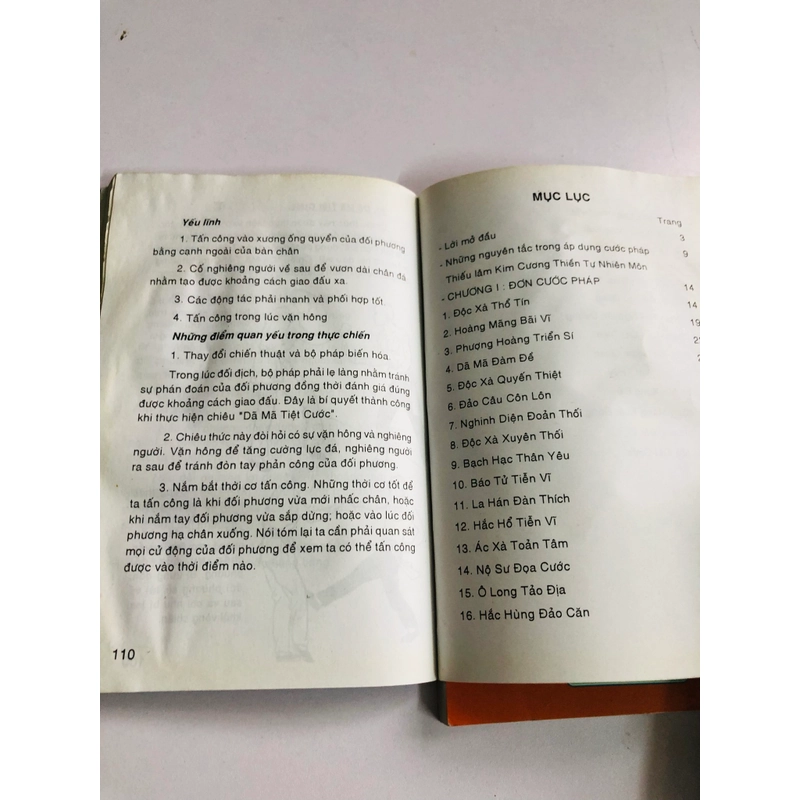 Yếu lĩnh
1. Tấn công vào xương ống quyển của đối phương
bằng cạnh ngoài của bàn chân
2. Cố nghiêng người về sau để vươn dài chân đá
nhằm tạo được khoảng cách giao đấu xa.
3. Các động tác phải nhanh và phối hợp tốt.
4. Tấn công trong lúc vận hông
Những điểm quan yếu trong thực chiến
1. Thay đổi chiến thuật và bộ pháp biến hóa.
Trong lúc đối địch, bộ pháp phải lẹ làng nhằm tránh
sự phán đoán của đối phương đồng thời đánh giá đúng
được khoảng cách giao đấu. Đây là bí quyết thành công
khi thực hiện chiêu "Dã Mã Tiệt Cước".
2. Chiêu thức này đòi hỏi có sự vận hông và nghiêng
người. Vận hông để tăng cường lực đá, nghiêng người
ra sau để tránh đòn tay phản công của đối phương.
3. Nắm bắt thời cơ tấn công. Những thời cơ tốt để
ta tấn công là khi đối phương vừa mới nhấc chân, hoặc
khi nắm tay đối phương vừa sắp dừng; hoặc vào lúc đối
phương hạ chân xuống. Nói tóm lại ta cần phải quan sát
mọi cử động của đối phương để xem ta có thể tấn công
được vào thời điểm nào.
110
MỤC LỤC
Trang
- Lời mở đầu 3
- Những nguyên tắc trong áp dụng cước pháp 9
Thiếu lâm Kim Cương Thiền Tự Nhiên Môn
- CHƯƠNG I : ĐƠN CƯỚC PHÁP 14
1. Độc Xà Thổ Tín 14
2. Hoàng Mãng Bãi Vĩ 19
3. Phượng Hoàng Triển Sí
4. Dã Mã Đàm Đề
5. Độc Xà Quyến Thiệt
6. Đảo Câu Côn Lôn
7. Nghinh Diện Đoản Thối
8. Độc Xà Xuyên Thối
9. Bạch Hạc Thân Yêu
10. Báo Tử Tiễn Vĩ
11. La Hán Đàn Thích
12. Hắc Hổ Tiễn Vĩ
13. Ác Xà Toản Tâm
14. Nộ Sư Đọa Cước
15. Ô Long Tảo Địa
16. Hắc Hùng Đảo Căn